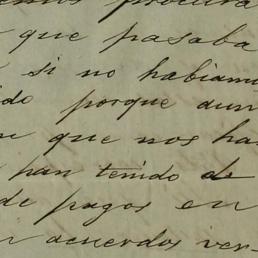 procura
que pasaba
si no habiamo
ido porque aun
que nos ha
han tenido de
de pagos en
acuerdos ver-